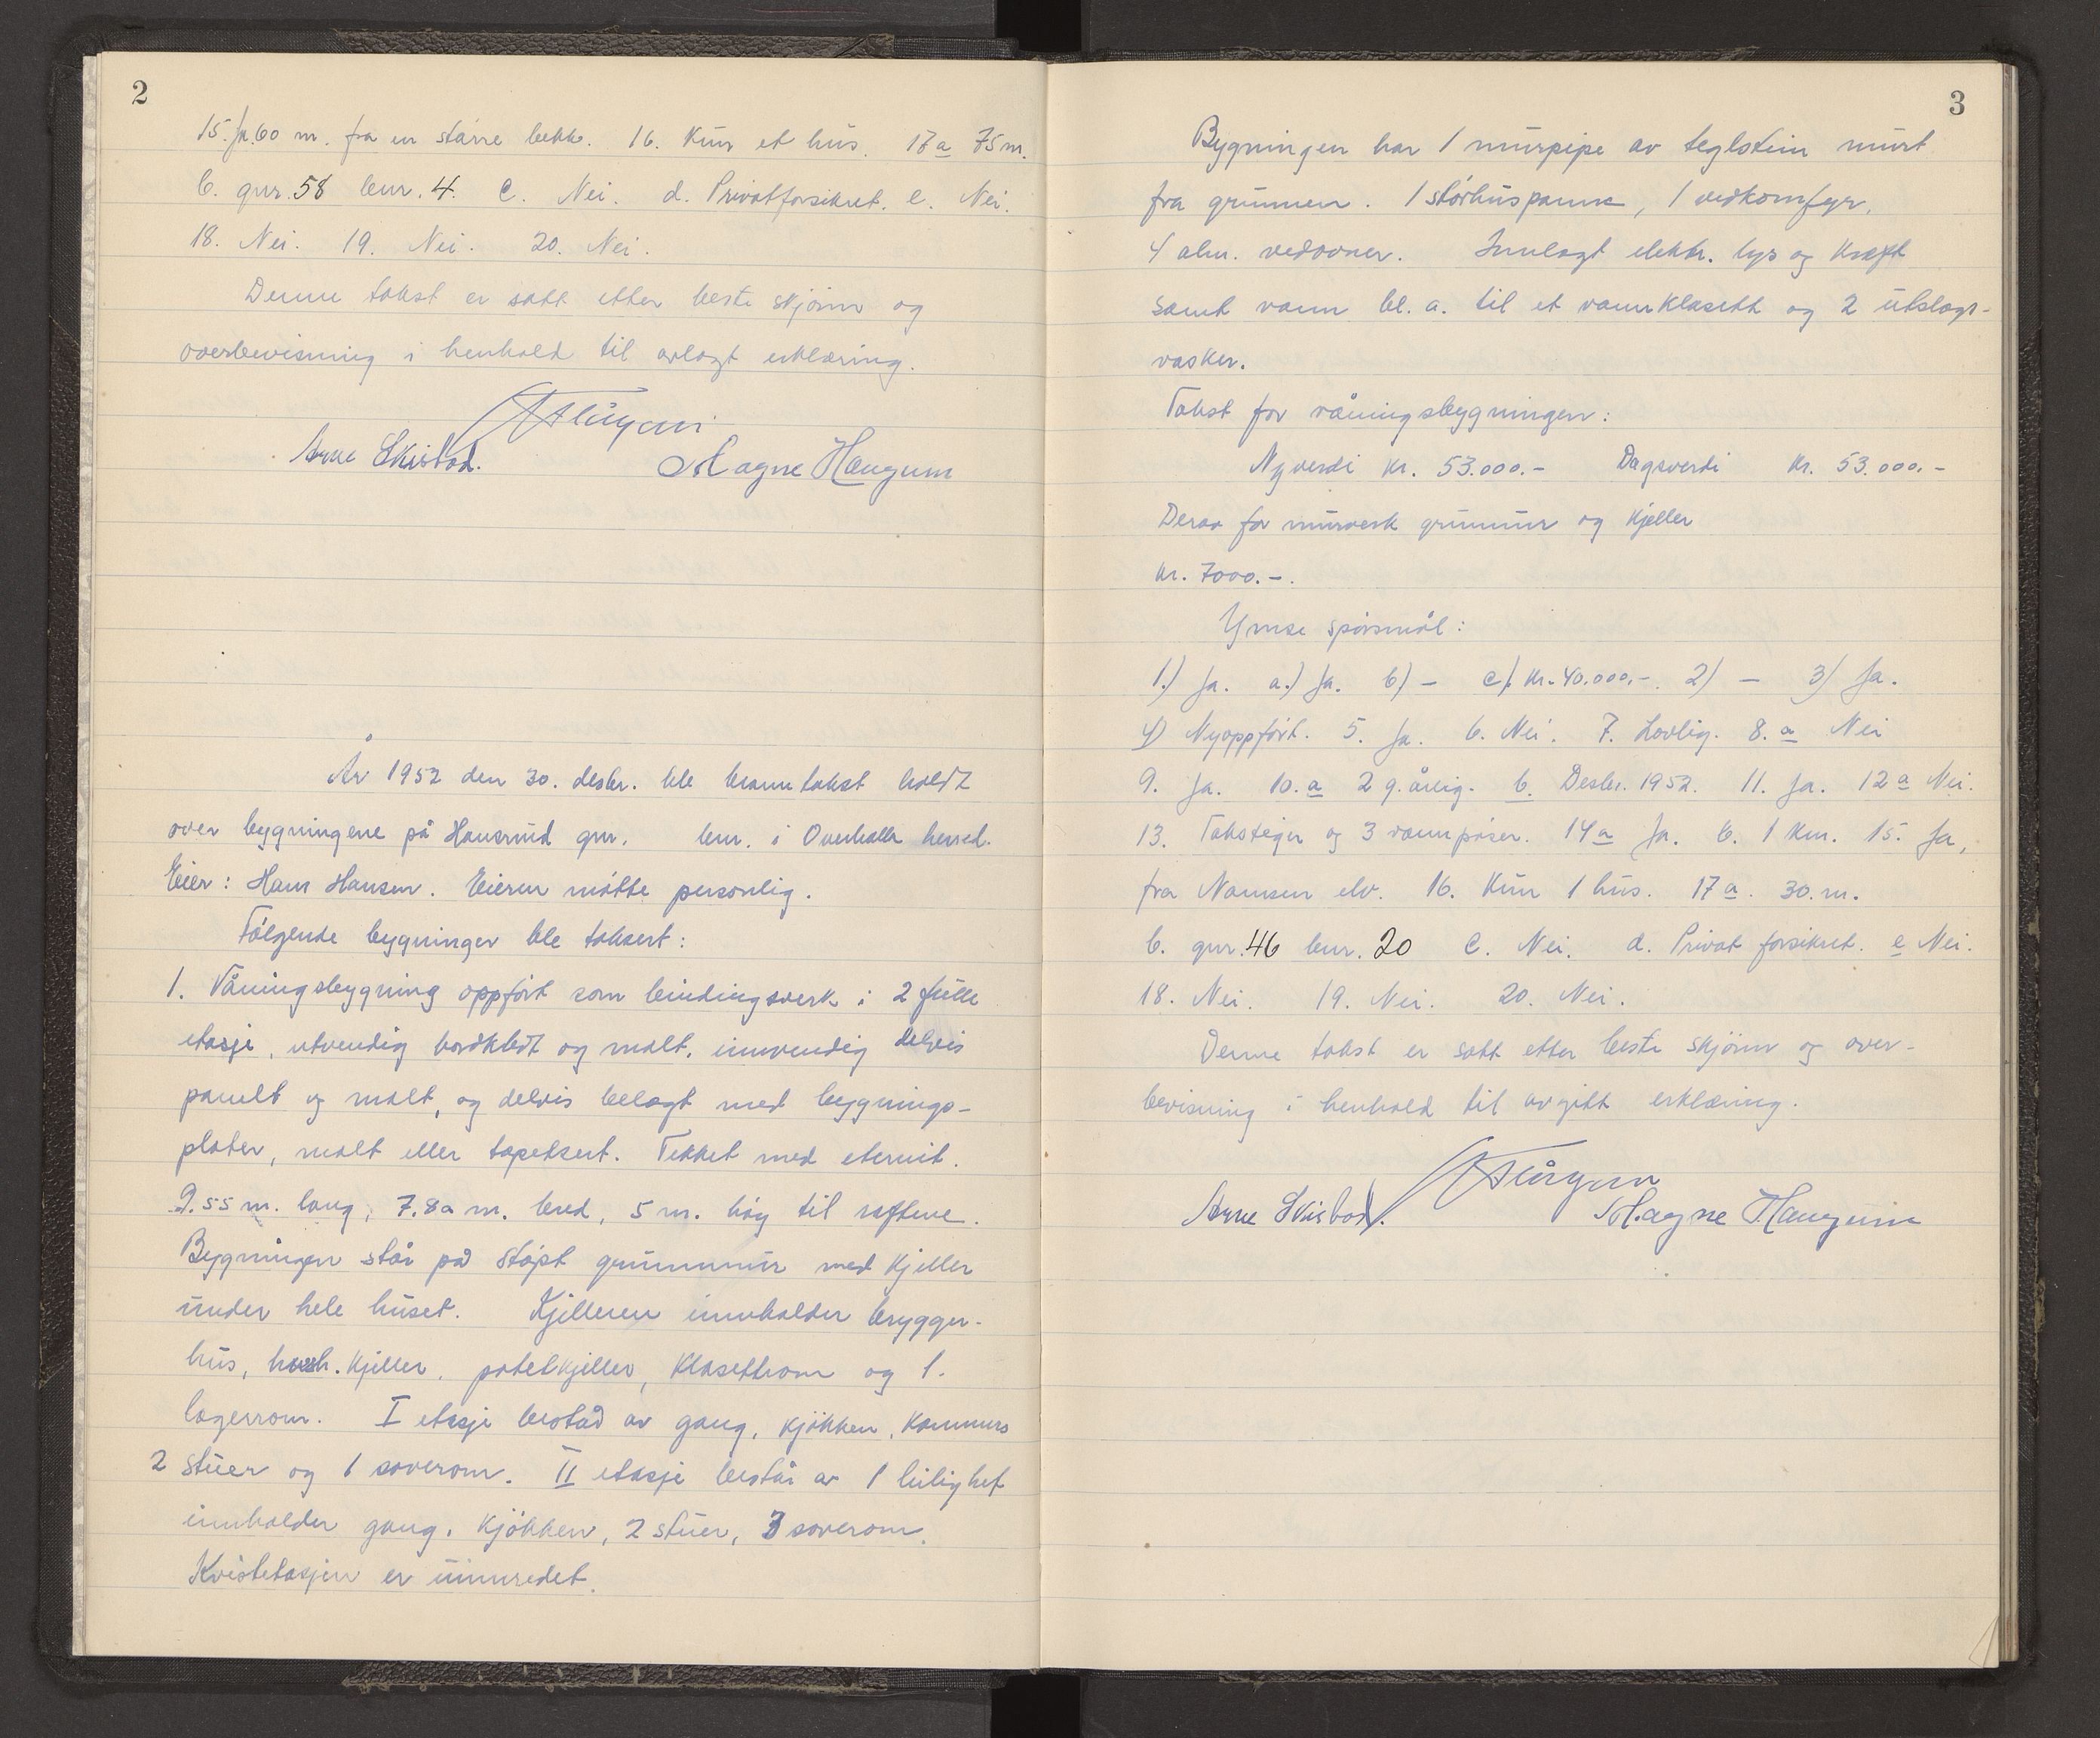 2
15. Ja. 60 m. fra en större bekk. 16. Kun et hus. 17 a 75 m.
b. gnr. 58 bnr. 4. c. Nei. d. Privatforsikret. e. Nei.
18. Nei. 19. Nei. 20. Nei.
Denne takst er satt etter beste skjönn og
overbevisning i henhold til avlagt erklæring.
Arne Skistad. Magne Haugum
År 1952 den 30. desbr. ble branntakst holdt
over bygningene på Hansrud gnr. bnr. i Overhalla herred.
Eier: Hans Hansen. Eieren mötte personlig.
Fölgende bygninger ble taksert:
1. Våningsbygning oppfört som bindingsverk i 2 fulle
etasje, utvendig bordkledt og malt, innvendig delvis
panelt og malt, og delvis belagt med bygnings-
plater, malt eller tapetsert. Tekket med eternit.
9.55 m. lang, 7.80 m. bred, 5 m. höy til raftene.
Bygningen står på stöpt grunnmur med kjeller
under hele huset. Kjelleren innholder brygger-
hus, hush. kjeller, potetkjeller, klosettrom og 1.
lagerrom. I etasje består av gang, kjökken, kammers
2 stuer og 1 soverom. II etasje består av 1 leilighet
innholder gang, kjökken, 2 stuer, 3 soverom.
Kvistetasjen er uinnredet.
3
Bygningen har 1 murpipe av teglstein murt
fra grunnen. 1 störhuspanne, 1 vedkomfyr,
4 alm. vedovner. Innlagt elektr. lys og kraft
samt vann bl. a. til et vannklosett og 2 utslags-
vasker.
Takst for våningsbygningen:
Nyverdi kr. 53.000.- Dagsverdi kr. 53.000.-
Derav for murverk grunnmur og kjeller
kr. 7000.-.
Ymse spörsmål:
1.) Ja. a.) Ja. b) - c). Kr. 40.000.-. 2) - 3) Ja.
4) Nyoppfört. 5. Ja. 6. Nei. 7. Lovlig. 8. a Nei
9. Ja. 10. a 2 g. årlig. b. Desbr. 1952. 11. Ja. 12 a Nei.
13. Takstiger og 3 vannpöser. 14 a Ja. b. 1 km. 15. Ja,
fra Namsen elv. 16. Kun 1 hus. 17 a. 30. m.
b. gnr. 46 bnr. 20 c. Nei. d. Privat forsikret. e Nei.
18. Nei. 19. Nei. 20. Nei.
Denne takst er satt etter beste skjönn og over-
bevisning i henhold til avgitt erklæring.
Arne Skistad. Magne Haugum